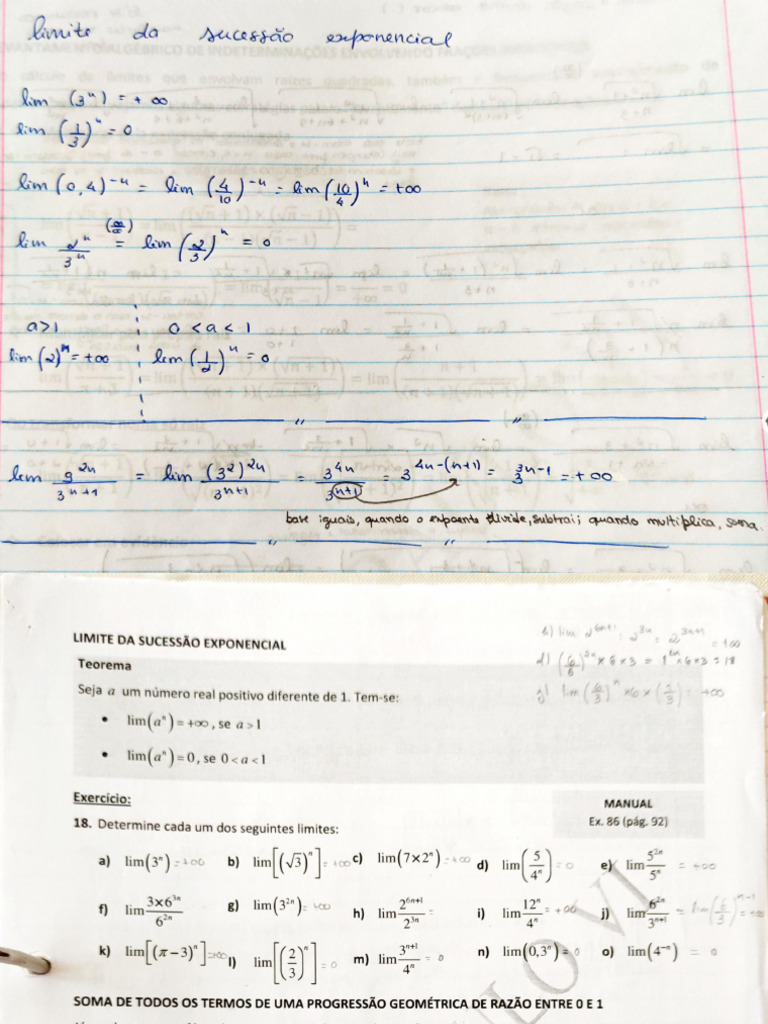 limite da sucessão exponencial
lim (3ⁿ) = +∞
lim (1/3)ⁿ = 0
lim (0,4)⁻ⁿ = lim (4/10)⁻ⁿ = lim (10/4)ⁿ = +∞
lim 2ⁿ/3ⁿ (∞/∞)= lim (2/3)ⁿ = 0
a>1 0 < a < 1
lim (2)ⁿ = +∞ lim (1/2)ⁿ = 0
lim 9²ⁿ/3ⁿ⁺¹ = lim (3²)²ⁿ/3ⁿ⁺¹ = 3⁴ⁿ/3ⁿ⁺¹ = 3⁴ⁿ⁻⁽ⁿ⁺¹⁾ = 3³ⁿ⁻¹ = +∞
base iguais, quando o expoente divide, subtrai; quando multiplica, soma.
LIMITE DA SUCESSÃO EXPONENCIAL
h) lim 2⁶ⁿ⁺¹ : 2³ⁿ = 2³ⁿ⁺¹ = +∞
Teorema
Seja a um número real positivo diferente de 1. Tem-se:
• lim(aⁿ) = +∞, se a > 1
• lim(aⁿ) = 0, se 0 < a < 1
Exercício:
MANUAL
Ex. 86 (pág. 92)
18. Determine cada um dos seguintes limites:
a) lim(3ⁿ) = +∞ b) lim[(√3)ⁿ] = +∞ c) lim(7×2ⁿ) = +∞ d) lim(5/4ⁿ) = 0 e) lim 5²ⁿ/5ⁿ = +∞
f) lim 3×6³ⁿ/6²ⁿ g) lim(3²ⁿ) = +∞ h) lim 2⁶ⁿ⁺¹/2³ⁿ = i) lim 12ⁿ/4ⁿ = +∞ j) lim 6²ⁿ/3ⁿ⁺¹ = lim(6/3)ⁿ⁻¹ = +∞
k) lim[(π−3)ⁿ] = +∞ l) lim[(2/3)ⁿ] = 0 m) lim 3ⁿ⁺¹/4ⁿ = 0 n) lim(0,3ⁿ) = 0 o) lim(4⁻ⁿ) = 0
SOMA DE TODOS OS TERMOS DE UMA PROGRESSÃO GEOMÉTRICA DE RAZÃO ENTRE 0 E 1